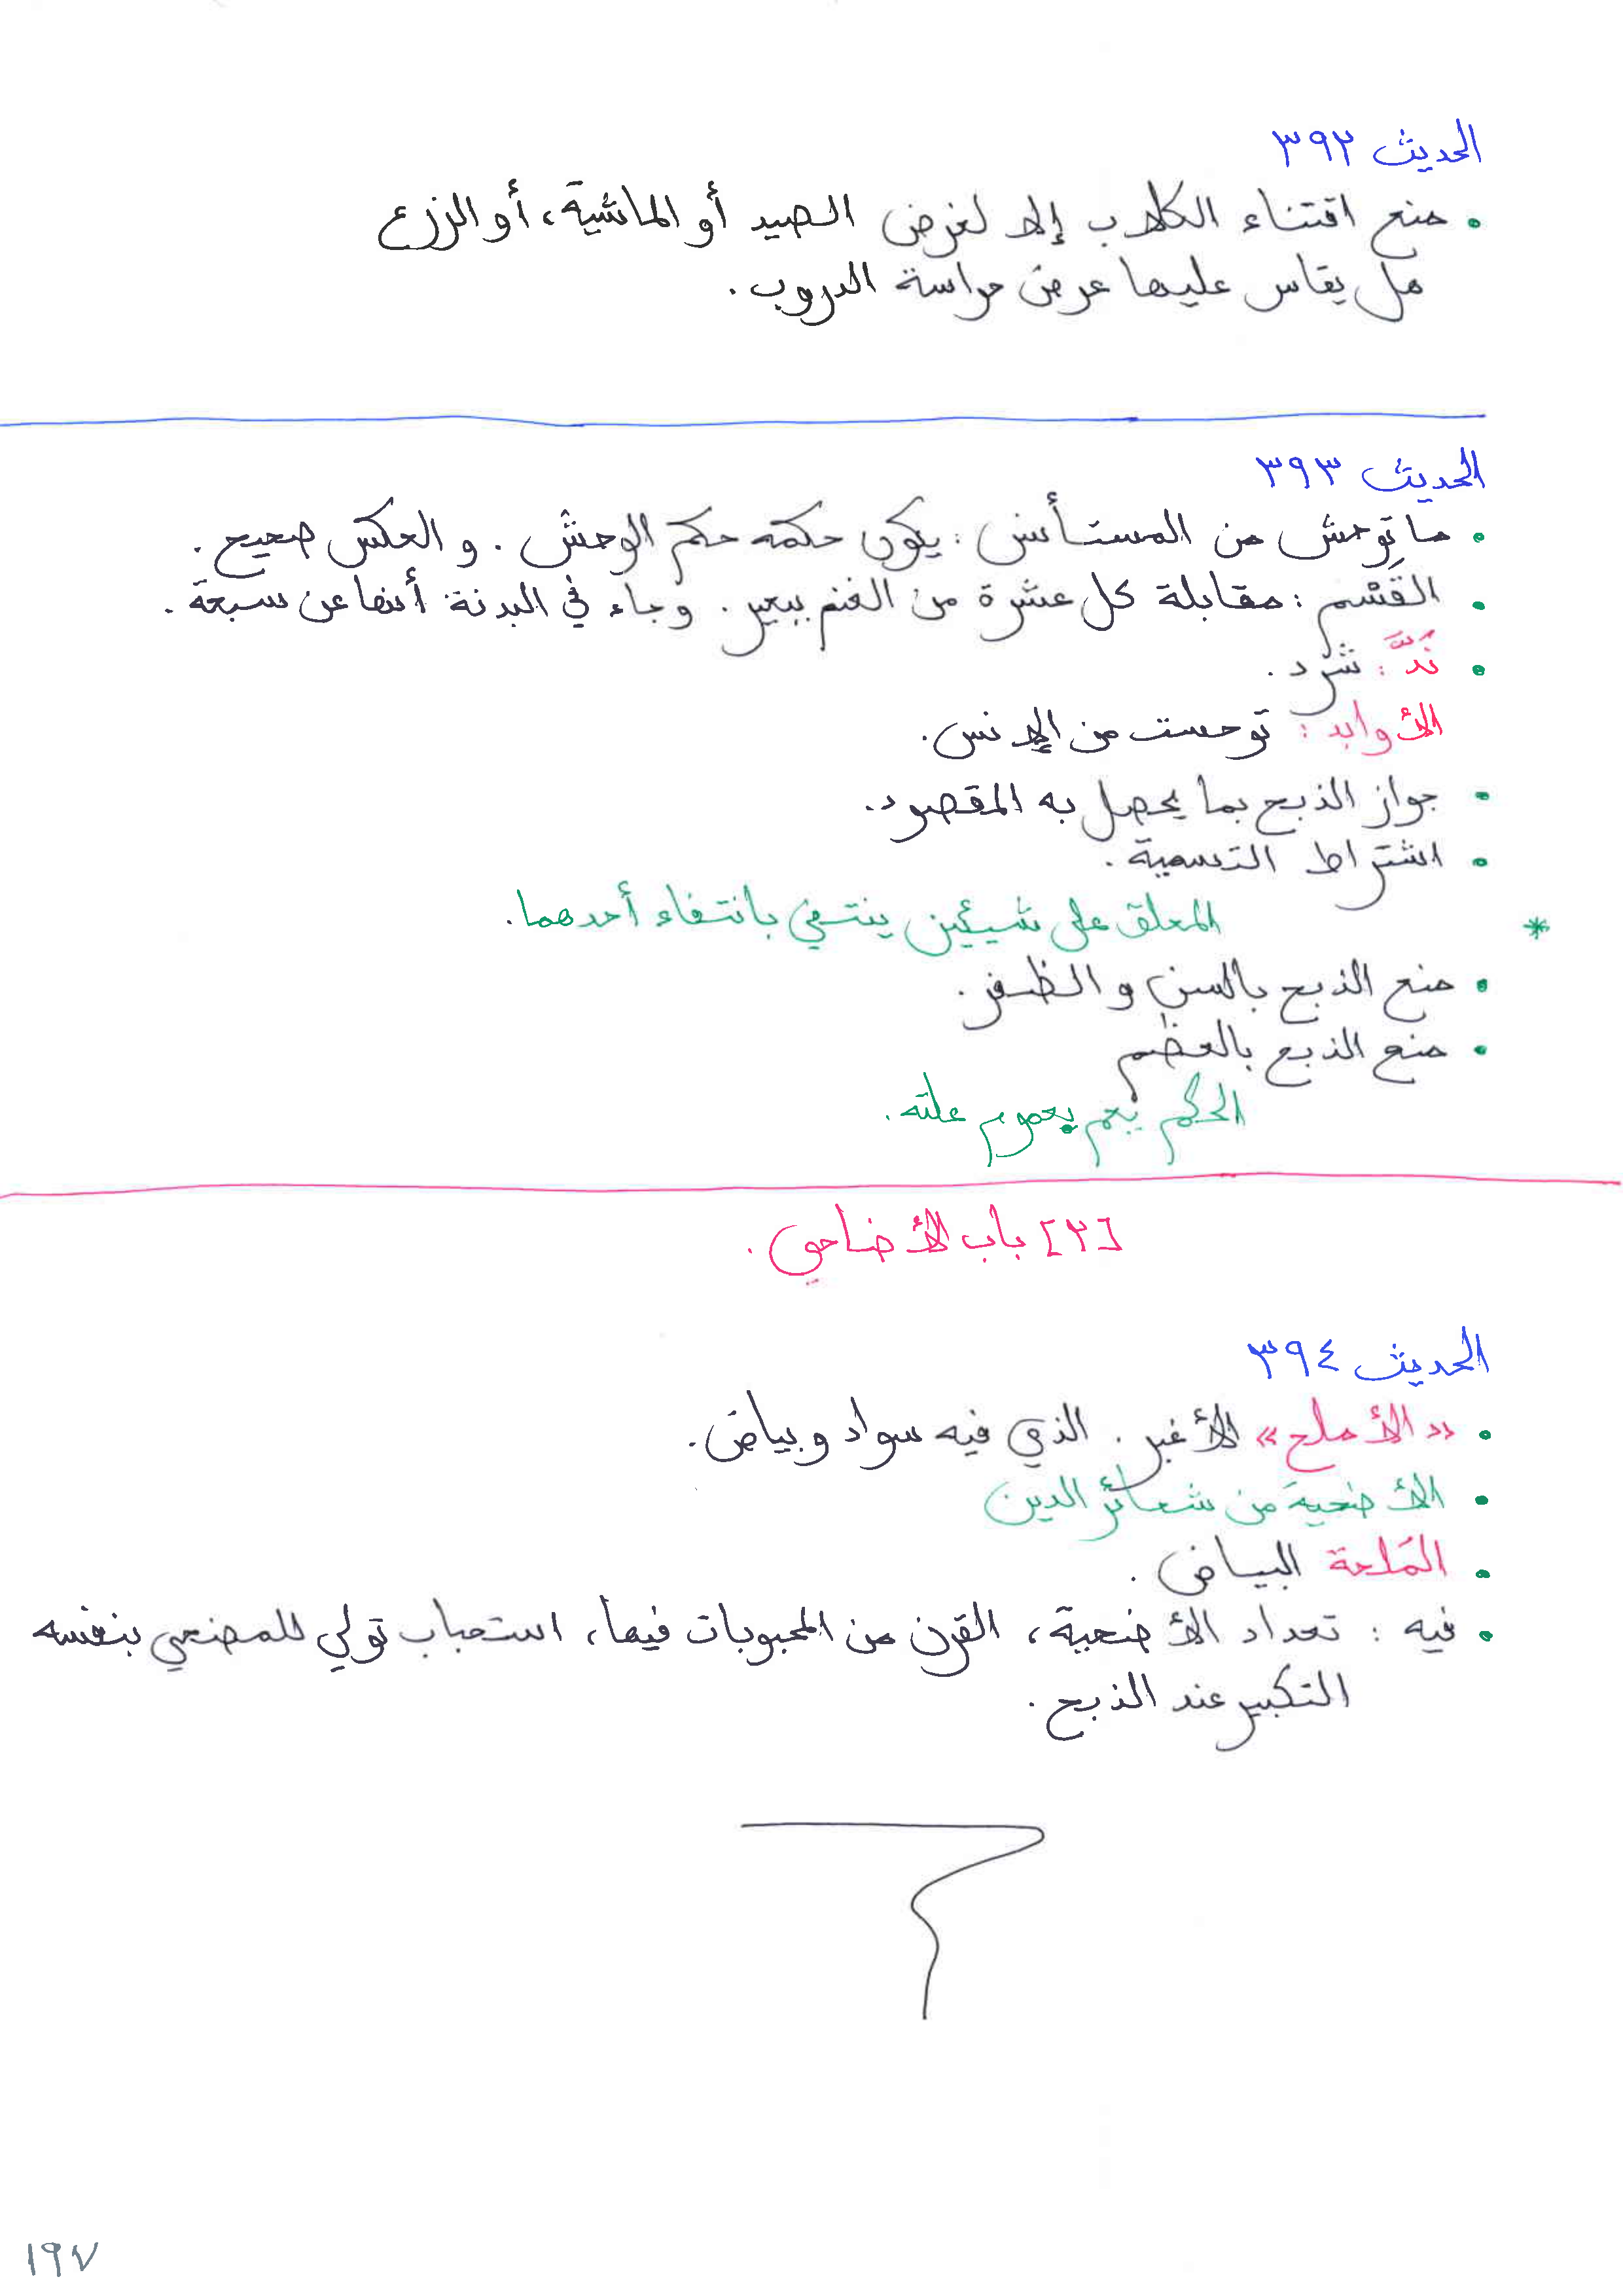 الحديث ٣٩٢
• منع اقتناء الكلاب إلا لغرض الصيد أو الماشية، أو الزرع
هل يقاس عليها عرض حراسة الدروب.
الحديث ٣٩٣
• ما توحش من المستأنس: يكون حكمه حكم الوحش. والعكس صحيح.
• القَسْم: مقابلة كل عشرة من الغنم ببعير. وجاء في البدنة أنها عن سبعة.
• نَدَّ: شرد.
الأوابد: توحست من الإنس.
• جواز الذبح بما يحصل به المقصود.
• اشتراط التسمية.
* المعلق على شيئين ينتفي بانتفاء أحدهما.
• منع الذبح بالسن والظفر.
• منع الذبح بالعظم
الحكم يعم بعموم علته.
[٢] باب الأضاحي.
الحديث ٣٩٤
• «الأملح» الأغبر. الذي فيه سواد وبياض.
• الأضحية من شعائر الدين
• المَلحة البياض.
• فيه: تعداد الأضحية، القرن من المحبوبات فيها، استحباب تولي للمضحي بنفسه
التكبير عند الذبح.
١٩٧